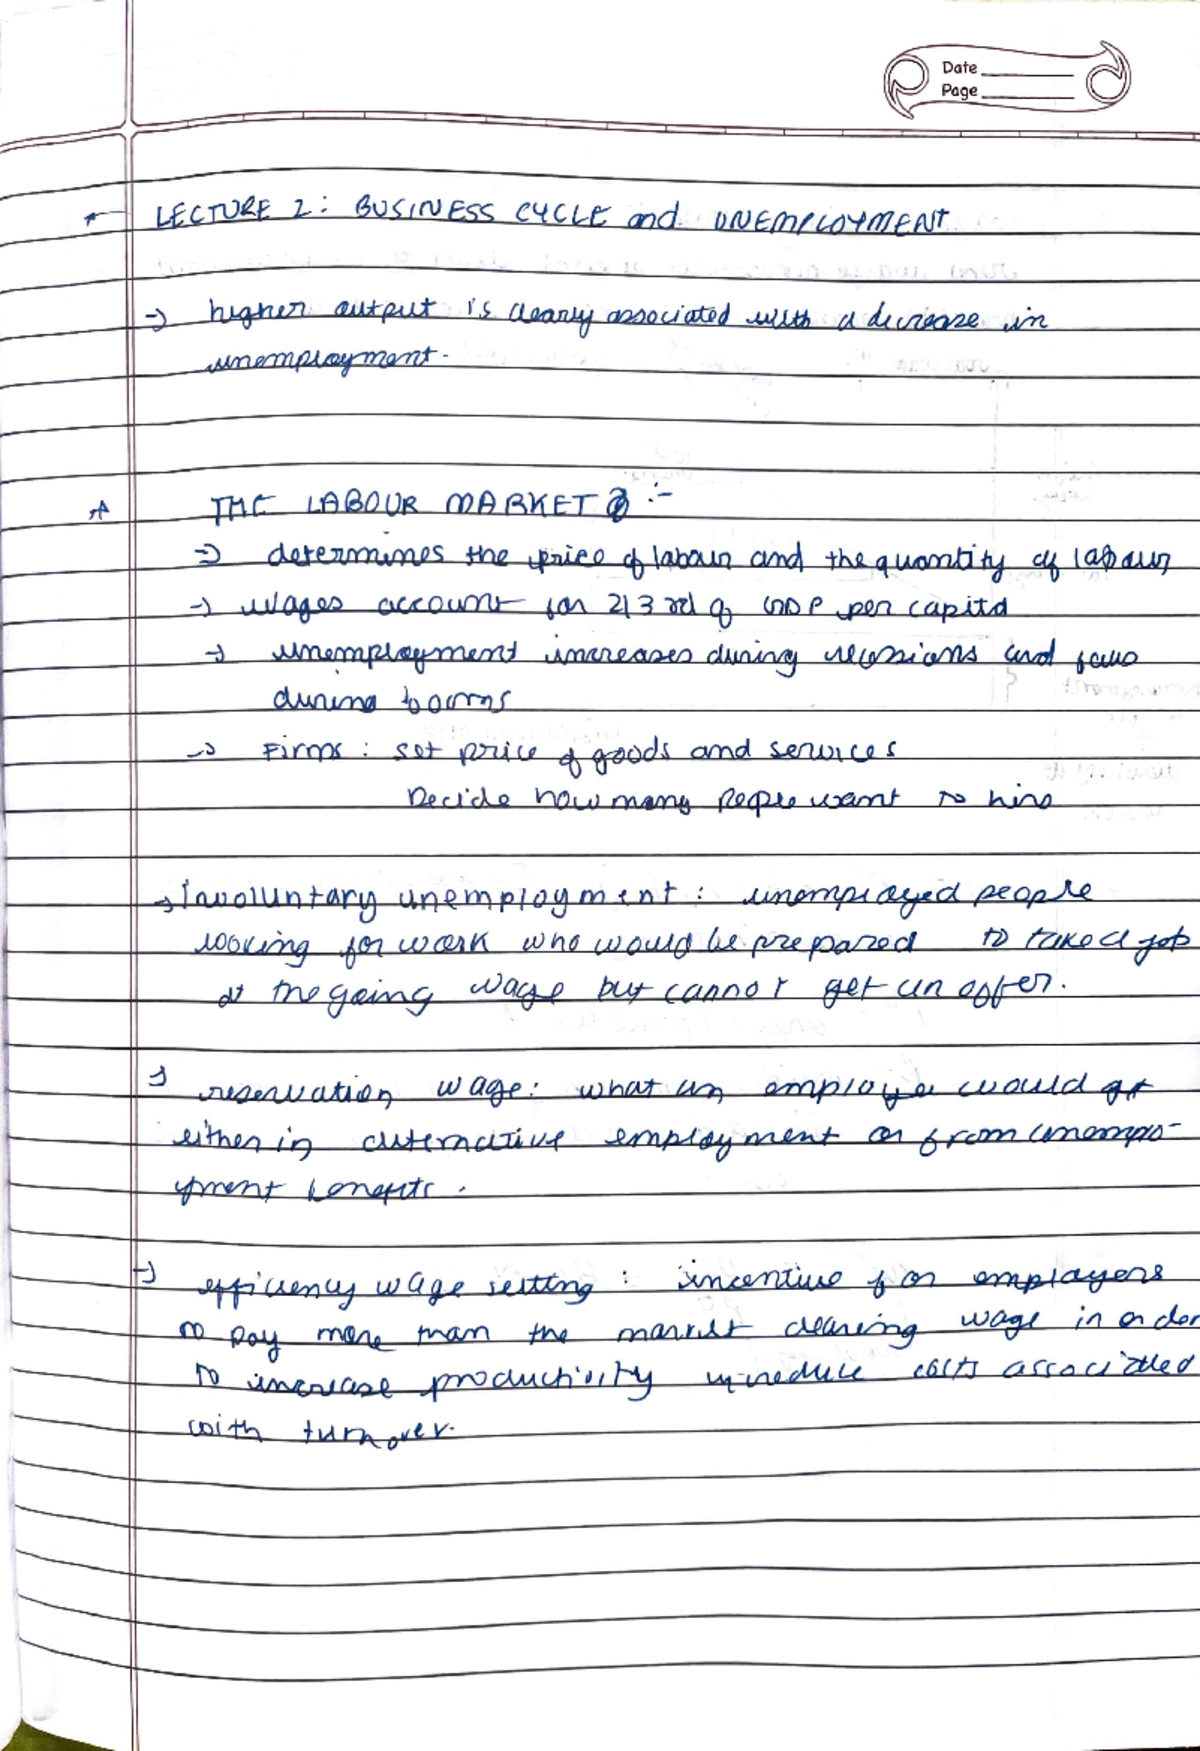 Date
Page
LECTURE 2: BUSINESS CYCLE and UNEMPLOYMENT
→ higher output is clearly associated with a decrease in
unemployment.
THE LABOUR MARKET :-
→ determines the price of labour and the quantity of labour
→ wages account for 2/3rd of GDP per capita
→ unemployment increases during recessions and falls
during booms
→ Firms: set price of goods and services
Decide how many people want to hire
→ Involuntary unemployment: unemployed people
looking for work who would be prepared to take a job
at the going wage but cannot get an offer.
→ reservation wage: what an employee would get
either in alternative employment or from unemplo-
yment benefits.
→ efficiency wage setting: incentive for employers
to pay more than the market clearing wage in order
to increase productivity reduce costs associated
with turnover.